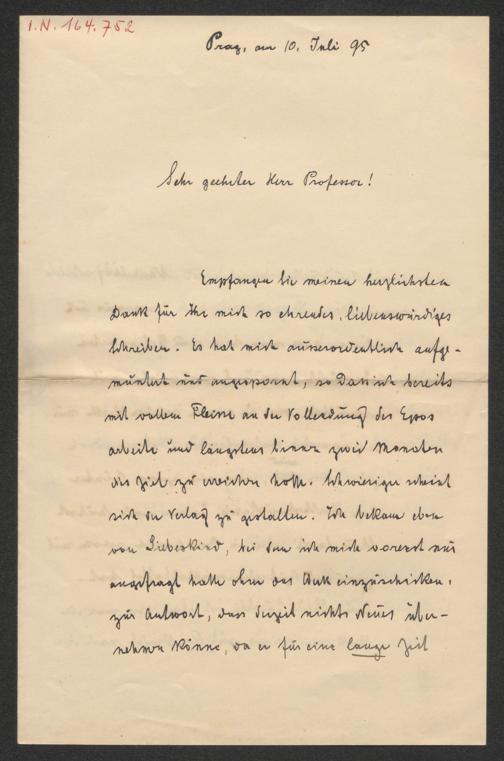 I.N. 164.752
Prag, am 10. Juli 95
Sehr geehrter Herr Professor!
Empfangen Sie meinen herzlichsten
Dank für Ihr mich so ehrendes, liebenswürdiges
Schreiben. Es hat mich ausserordentlich aufge-
muntert und angespornt, so dass ich bereits
mit vollem Fleisse an der Vollendung des Epos
arbeite und längstens binnen zwei Monaten
das Ziel zu erreichen hoffe. Schwieriger scheint
sich der Verlag zu gestalten. Ich bekam eben
von Liebeskind, bei dem ich mich vorerst nur
angefragt hatte ohne das einzuschicken,
zur Antwort, dass derzeit nichts Neues über-
nehmen könne, da er für eine lange Zeit